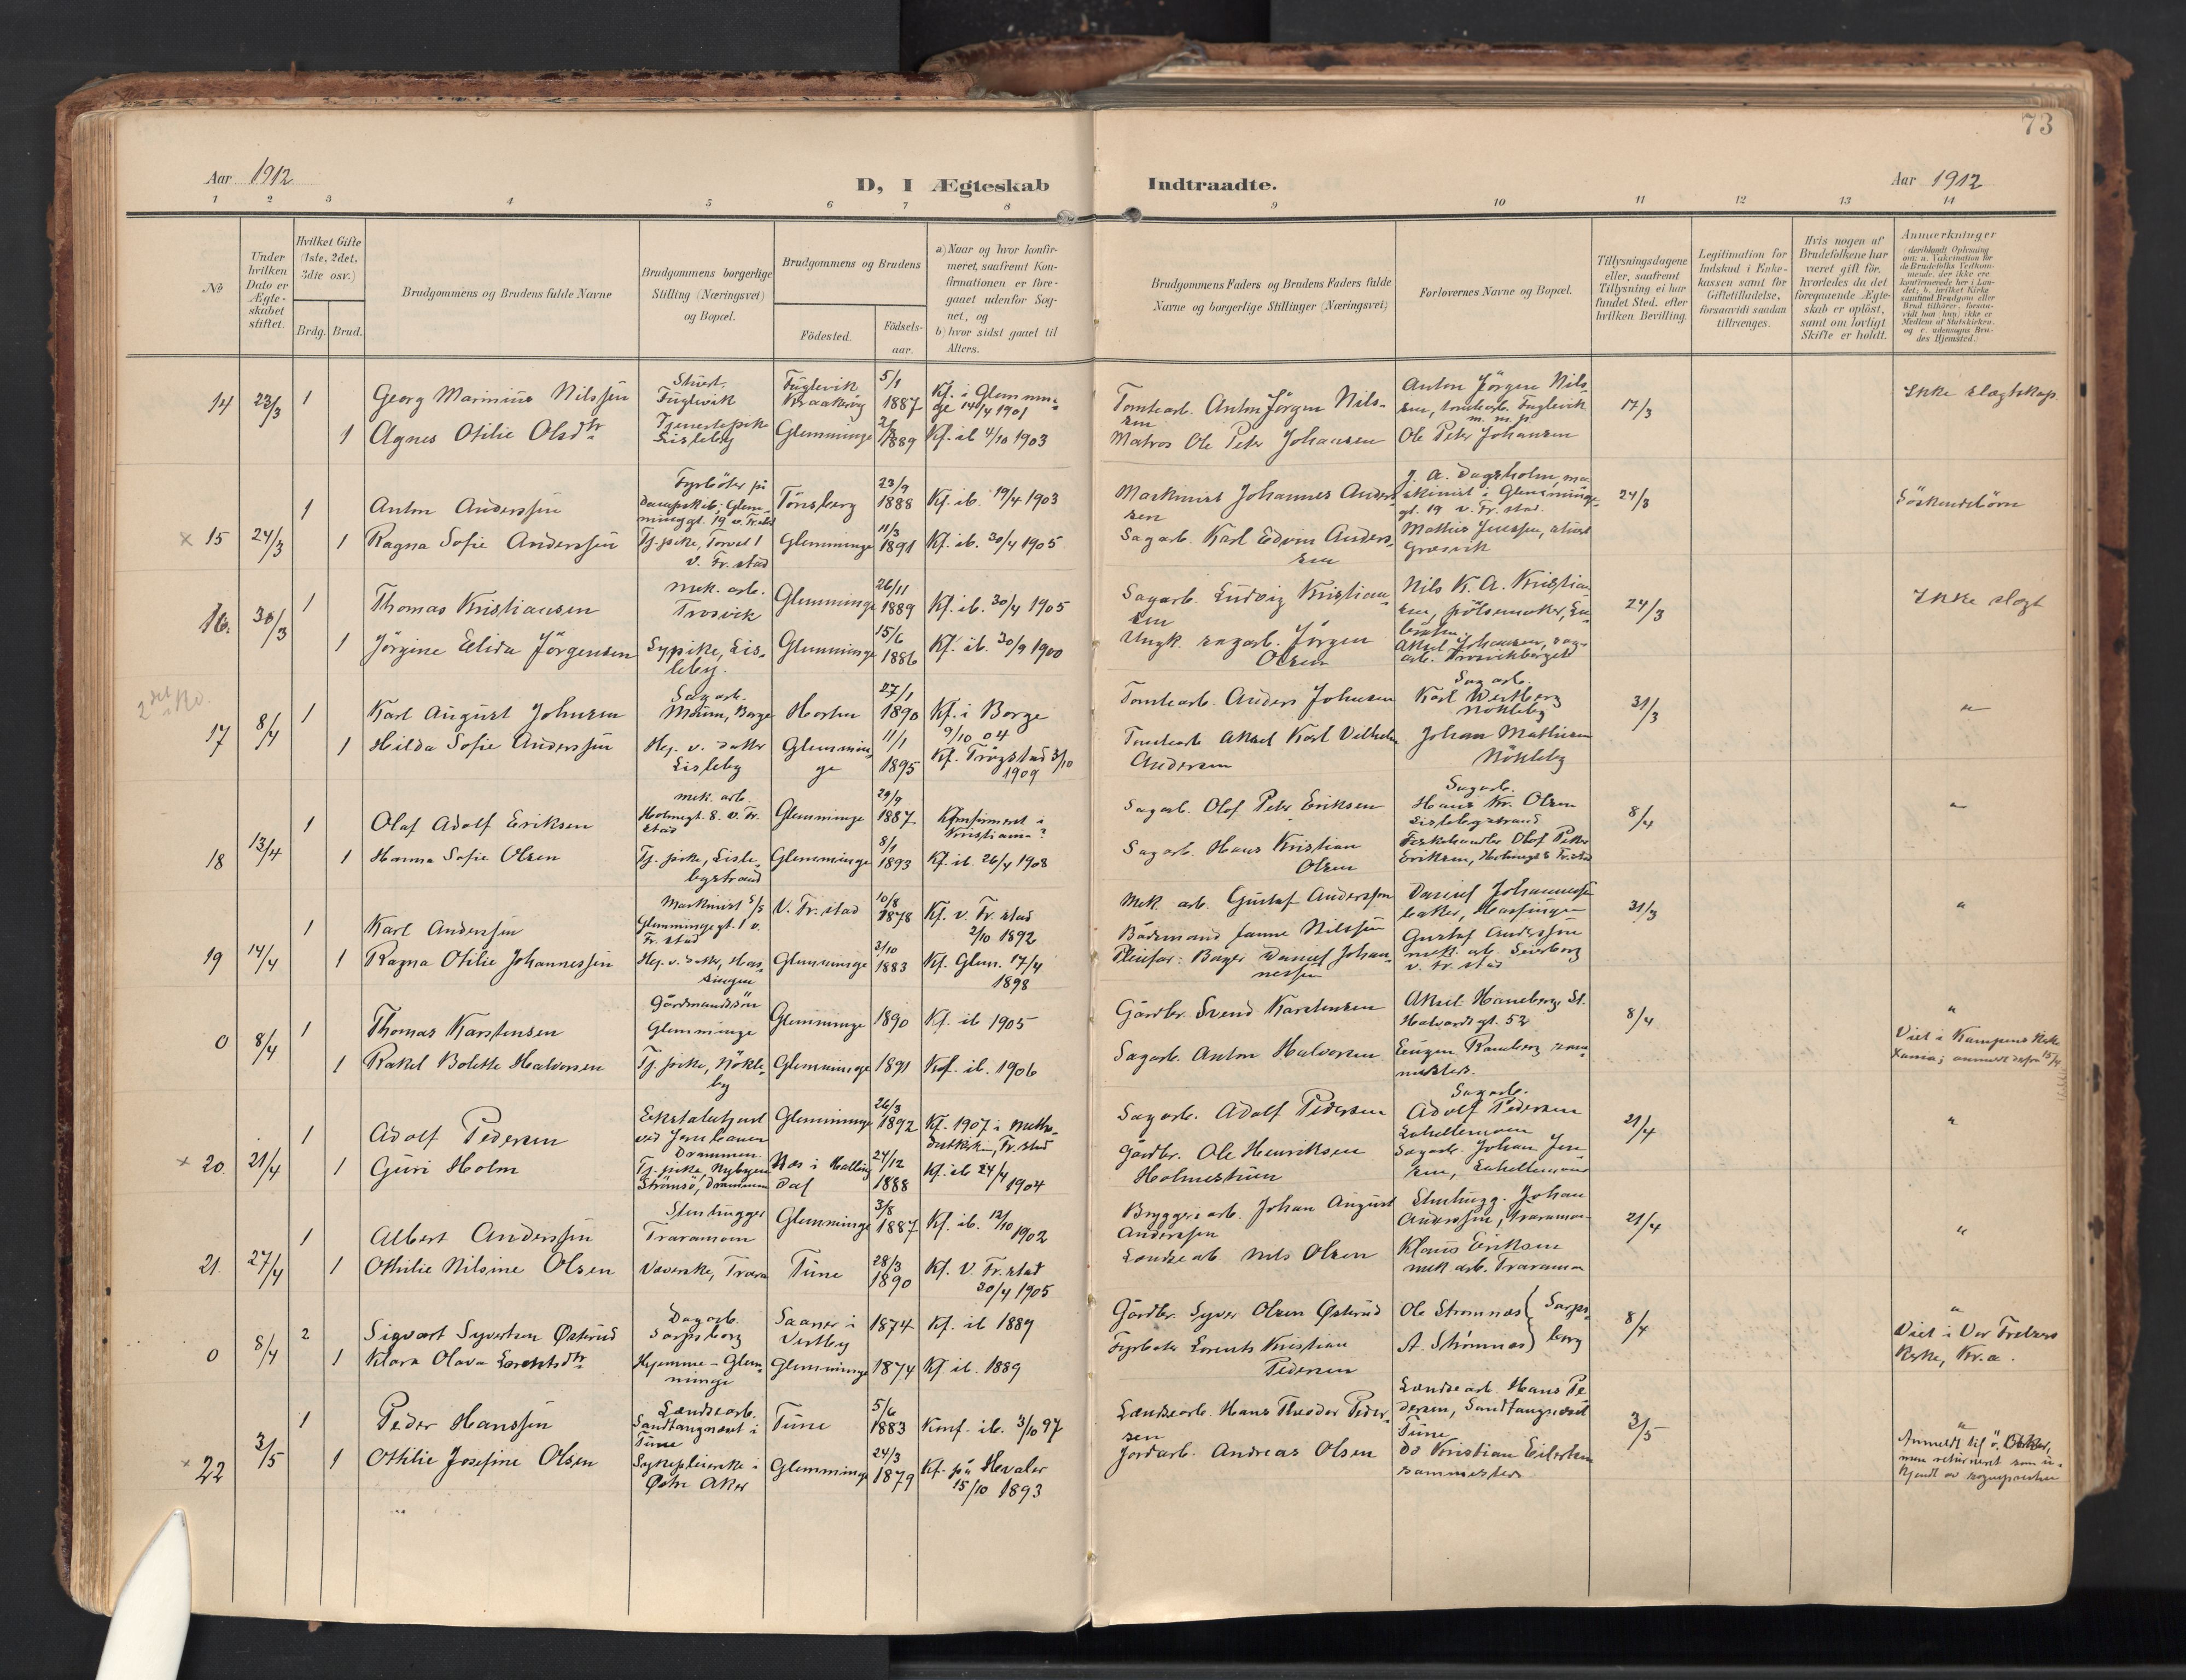 73
Aar 1912
D, I Ægteskab Indtraadte.
Aar 1912
1 2 3 4 5 6 7 8 9 10 11 12 13 14
No
Under hvilken Dato er Ægteskabet stiftet.
Hvilket Gifte (1ste, 2det, 3die osv.)
Brdg. Brud.
Brudgommens og Brudens fulde Navne
Brudgommens borgerlige Stilling (Næringsvei) og Bopæl.
Brudgommens og Brudens
Födested.
Födsels-aar.
a) Naar og hvor konfirmeret, saafremt Konfirmationen er foregaaet udenfor Sognet, og
b) hvor sidst gaaet til Alters.
Brudgommens Faders og Brudens Faders fulde Navne og borgerlige Stillinger (Næringsvei)
Forlovernes Navne og Bopæl.
Tillysningsdagene eller, saafremt Tillysning ei har fundet Sted, efter hvilken Bevilling.
Legitimation for Indskud i Enkekassen samt for Giftetilladelse, forsaavidt saadan tiltrænges.
Hvis nogen af Brudefolkene har været gift før, hvorledes da det foregaaende Ægteskab er oplöst, samt om lovligt Skifte er holdt.
Anmærkninger
14 23/3 1 Georg Marinius Nilssen Stuert. Fuglevik Fuglevik Kraakerøy 5/1 1887 Kf. i Glemminge 14/4 1901 Tomtearb. Anton Jörgen Nilssen Anton Jörgen Nilssen, tomtearb. Fuglevik 17/3 Ikke slagtskap.
1 Agnes Otilie Olsdtr Tjenestepik Lisleby Glemminge 1889 Kf. ib 4/10 1903 Matros Ole Peter Johansen Ole Peter Johansen
x 15 24/3 1 Anton Anderssen Fyrböter på Dampskib. Glemminggt. 19 v. Fr.stad Tönsberg 23/9 1888 Kf. ib. 19/4 1903 Maskinist Johannes Anderssen J. A. Dagsholm, maskinist i Glemminge gt. 19 v. Fr. stad. 24/3 Söskendebörn
1 Ragna Sofie Anderssen Tj. pike, Torvet 1 v. Fr. stad Glemminge 11/3 1891 Kf. ib. 30/4 1905 Sagarb. Karl Edvin Anderssen Mathis Jenssen, stuert Græsvik
16. 30/3 1 Thomas Kristiansen mek. arb. Trosvik Glemminge 26/11 1889 Kf. ib. 30/4 1905 Sagarb. Ludvig Kristiansen Nils K. A. Kristiansen, pölsemaker, 24/3 Ikke slagt
1 Jörgine Elida Jörgensen Sypike, Lisleby. Glemminge 15/6 1886 Kf. ib. 30/9 1900 Ungk. sagarb. Jörgen Olsen Aksel Johansen, sagarb. Trosvikberget
17 8/4 1 Karl August Johnsen Sagarb. Moum, Borge Horten 27/1 1890 Kf. i Borge 9/10 04 Tomtearb. Anders Johnsen Sagarb. Karl Westberg Nökleby 31/3 "
1 Hilda Sofie Anderssen Hej. v. datter Lisleby Glemminge 11/1 1895 Kf. Trøgstad 3/10 1909 Tomtearb Aksel Karl Vilhelm Andersen Johan Mathisen Nökleby
18 13/4 1 Olaf Adolf Eriksen mek. arb. Holmegt. 8. v. Fr. stad Glemminge 29/9 1887 Konfirmeret i Kristiania? Sagarb. Olof Peter Eriksen Sagarb. Hans Kr. Olsen Lislebystrand 8/4 "
1 Hanna Sofie Olsen Tj. pike, Lislebystrand Glemminge 8/1 1893 Kf. ib. 26/4 1908 Sagarb. Hans Kristian Olsen Fiskehandler Olof Peter Eriksen, Holmegt 8 Fr.stad
19 14/4 1 Karl Anderssen Maskinist Glemmingegt. 1 v. Fr. stad V. Fr. stad 10/8 1878 Kf. v. Fr. stad 2/10 1892 Mek arb. Gustaf Anderssen Daniel Johannessen baker, Hassingen 31/3 "
1 Ragna Otilie Johannessen Hej. v. datter, Hassingen Glemminge 3/10 1883 Kf. Glem. 17/4 1898 Baadsmand Janne Nilssen Pleiefar: Bager Daniel Johannessen Gustaf Anderssen mek. arb. Seierborg v. Fr. stad
0 8/4 1 Thomas Karstensen Gårdmandssön Glemminge Glemminge 1890 Kf. ib 1905 Gårdbr. Svend Karstensen Aksel Haneborg, St. Halvards gt. 52 8/4 " Viet i Kampens Kirke
1 Rakel Bolette Halvorsen Tj. pike, Nökleby Glemminge 1891 Kof. ib. 1906 Sagarb. Anton Halvorsen Eugen Ramberg sammesteds.
x 20. 21/4 1 Adolf Pedersen Ekstrabetjent ved Jernbanen Drammen Glemminge 26/3 1892 Kf. 1907 i Methodistkirken, Fr. stad Sagarb. Adolf Pedersen Sagarb. Adolf Pedersen 21/4 "
1 Guri Holm Tj. pike, Nybyen Strömsö, Drammen Næs i Hallingdal 24/12 1888 Kf. ib 24/4 1904 Gårdbr. Ole Henriksen Holmestuen Sagarb. Johan Jensen,
21. 27/4 1 Albert Anderssen Stenhugger Traramoen Glemminge 3/8 1887 Kf. ib. 12/10 1902 Bryggeriarb. Johan August Anderssen Stenhugg. Johan Anderssen, Traramoen 21/4 "
1 Othilie Nilsine Olsen Væverske, Trara Tune 28/3 1890 Kf. V. Fr. stad 30/4 1905 Lændsearb Nils Olsen Klaus Eriksen mek arb. Traramoen
0 8/4 2 Sigvart Syvertsen Østerud Dagarb. Sarpsborg Saaner i Vestby 1874 Kf. ib 1889 Gårdbr. Syver Olsen Østerud Ole Strømnæs Sarpsborg 8/4 " Viet i Vor Frelsers Kirke, Kr.a.
1 Klara Olava Lorentsdtr Hjemme – Glemminge Glemminge 1874 Kf. ib. 1889 Fyrböter Lorents Kristian Pedersen A. Strømnæs
x 22 3/5 1 Peder Hanssen Lændsearb. Sandtangneset i Tune Tune 5/6 1883 Konf. ib. 3/10 97 Lændsearb. Hans Theodor Pedersen Lændsearb Hans Pedersen, Sandtangneset Tune 3/5 "
1 Othilie Josefine Olsen Sykepleierske i Østre Aker Glemminge 24/3 1879 Kf. på Hvaler 15/10 1893 Jordarb. Andreas Olsen do Kristian Eilertsen sammesteds Anmeldt til ö. Aker, men returneret som ukjendt av sogneprestен